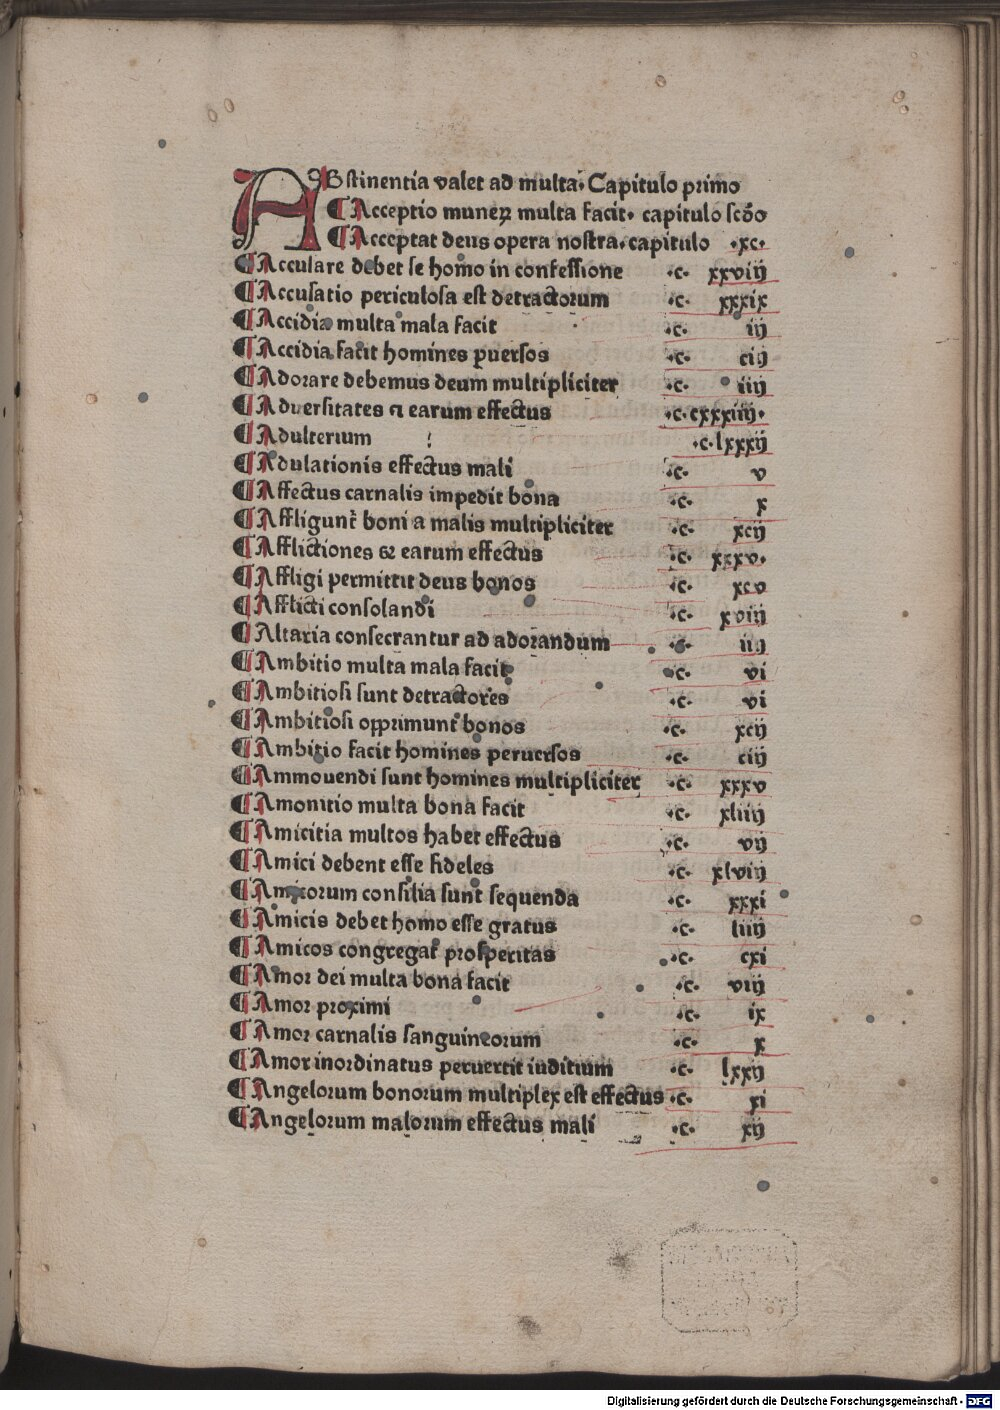 ABstinentia valet ad multa. Capitulo primo
¶ Acceptio muneꝝ multa facit. capitulo scd̄o
¶ Acceptat deus opera nostra. capitulo .xc.
¶ Acculare debet se homo in confessione .c. xxviij
¶ Accusatio periculosa est detractorum .c. xxxix
¶ Accidia multa mala facit .c. iij
¶ Accidia facit homines ꝑuersos .c. ciij
¶ Adorare debemus deum multipliciter .c. iiij
¶ Aduersitates ⁊ earum effectus .c. cxxxiiij.
¶ Adulterium .c. lxxxij
¶ Adulationis effectus mali .c. v
¶ Affectus carnalis impedit bona .c. x
¶ Affligunt᷑ boni a malis multipliciter .c. xcij
¶ Afflictiones ⁊ earum effectus .c. xxxv.
¶ Affligi permittit deus bonos .c. xcv
¶ Afflicti consolandi .c. xviij
¶ Altaria consecrantur ad adorandum .c. iiij
¶ Ambitio multa mala facit .c. vi
¶ Ambitiosi sunt detractores .c. vi
¶ Ambitiosi opprimunt bonos .c. xcij
¶ Ambitio facit homines peruersos .c. ciij
¶ Ammouendi sunt homines multipliciter .c. xxxv
¶ Amonitio multa bona facit .c. xliiij
¶ Amicitia multos habet effectus .c. vij
¶ Amici debent esse fideles .c. xlviij
¶ Amicorum consilia sunt sequenda .c. xxxi
¶ Amicis debet homo esse gratus .c. liiij
¶ Amicos congregat᷑ prosperitas .c. cxi
¶ Amor dei multa bona facit .c. viij
¶ Amor proximi .c. ix
¶ Amor carnalis sanguineorum .c. x
¶ Amor inordinatus peruertit iuditium .c. lxxij
¶ Angelorum bonorum multiplex est effectus .c. xi
¶ Angelorum malorum effectus mali .c. xij
Digitalisierung gefördert durch die Deutsche Forschungsgemeinschaft - DFG